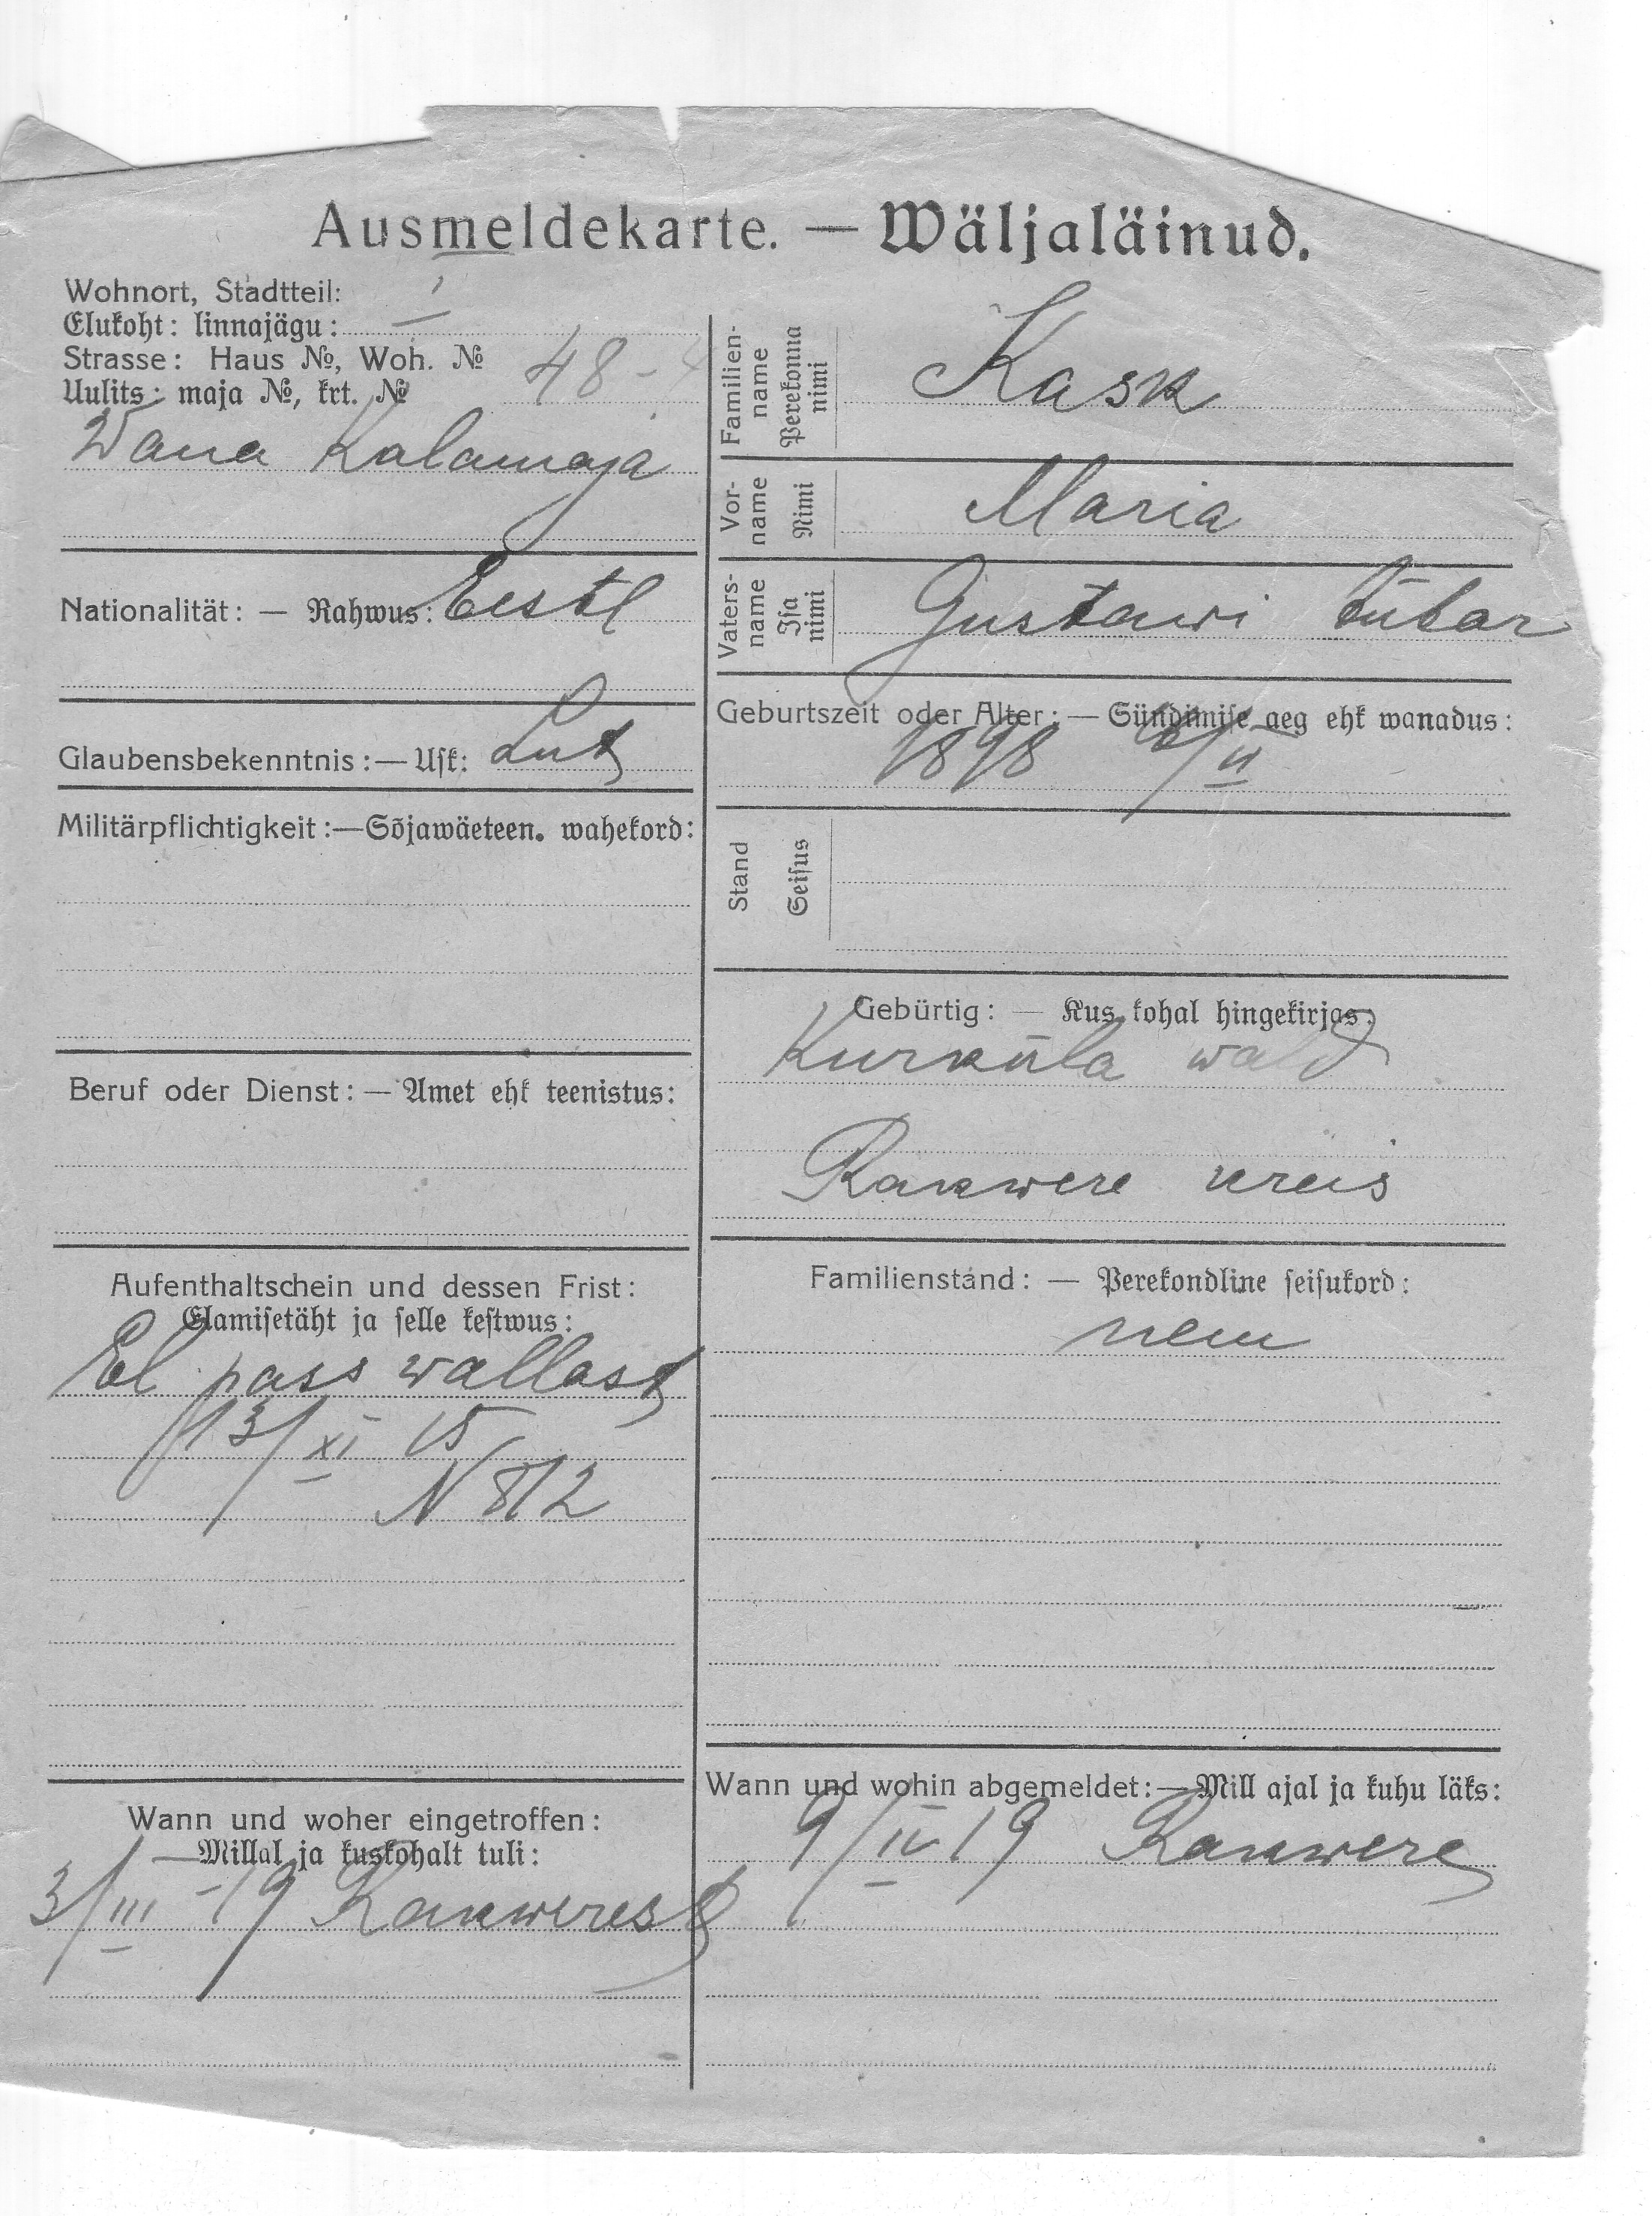 Ausmeldekarte. — Wäljaläinud.
Wohnort, Stadtteil:
Elukoht: linnajägu: I
Strasse: Haus №, Woh. №
Uulits: maja №, krt. № 48-4
Wana Kalamaja
Nationalität: — Rahwus: Eestl
Glaubensbekenntnis:— Usk: Lut
Militärpflichtigkeit:—Sõjawäeteen. wahekord:
Beruf oder Dienst: — Amet ehk teenistus:
Aufenthaltschein und dessen Frist:
Elamisetäht ja selle kestwus:
El pass wallast
13/XI 15
N 812
Wann und woher eingetroffen:
—Millal ja kuskohalt tuli:
3/III -19 Rakwerest
Familien-
name
Perekonna
nimi
Kask
Vor-
name
Nimi
Maria
Vaters-
name
Isa
nimi
Gustawi tübar
Geburtszeit oder Alter: — Sündimise aeg ehk wanadus:
1898
Stand
Seisus
Gebürtig: — Kus kohal hingekirjas:
Kurküla wald
Rakwere kreis
Familienstand: — Perekondline seisukord:
Wann und wohin abgemeldet:—Mill ajal ja kuhu läks:
9/IV 19 Rakwere